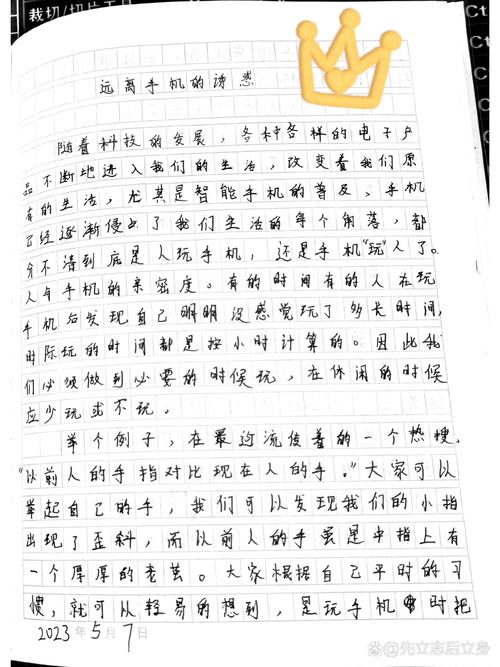 裁切/切片工具
Ct
Ct
远离手机的诱惑
随着科技的发展，各种各样的电子产
品不断地进入我们的生活，改变着我们原
有的生活，尤其是智能手机的普及，手机
已经逐渐侵占了我们生活的每个角落，都
分不清到底是人玩手机，还是手机"玩"人了。
人与手机的亲密度。有的时间有的人在玩
手机后发现自己明明没感觉玩了多长时间，
时际玩的时间都是按小时计算的。因此我
们必须做到必要的时候玩，在休闲的时候
应少玩或不玩。
举个例子，在最近流传着的一个热搜，
"以前人的手指对比现在人的手。"大家可以
举起自己的手，我们可以发现我们的小指
出现了歪斜，而以前人的手虽是中指上有
一个厚厚的老茧。大家根据自己平时的习
惯，就可以轻易的想到，是玩手机时把
2023年5月7日
@先立志后立身